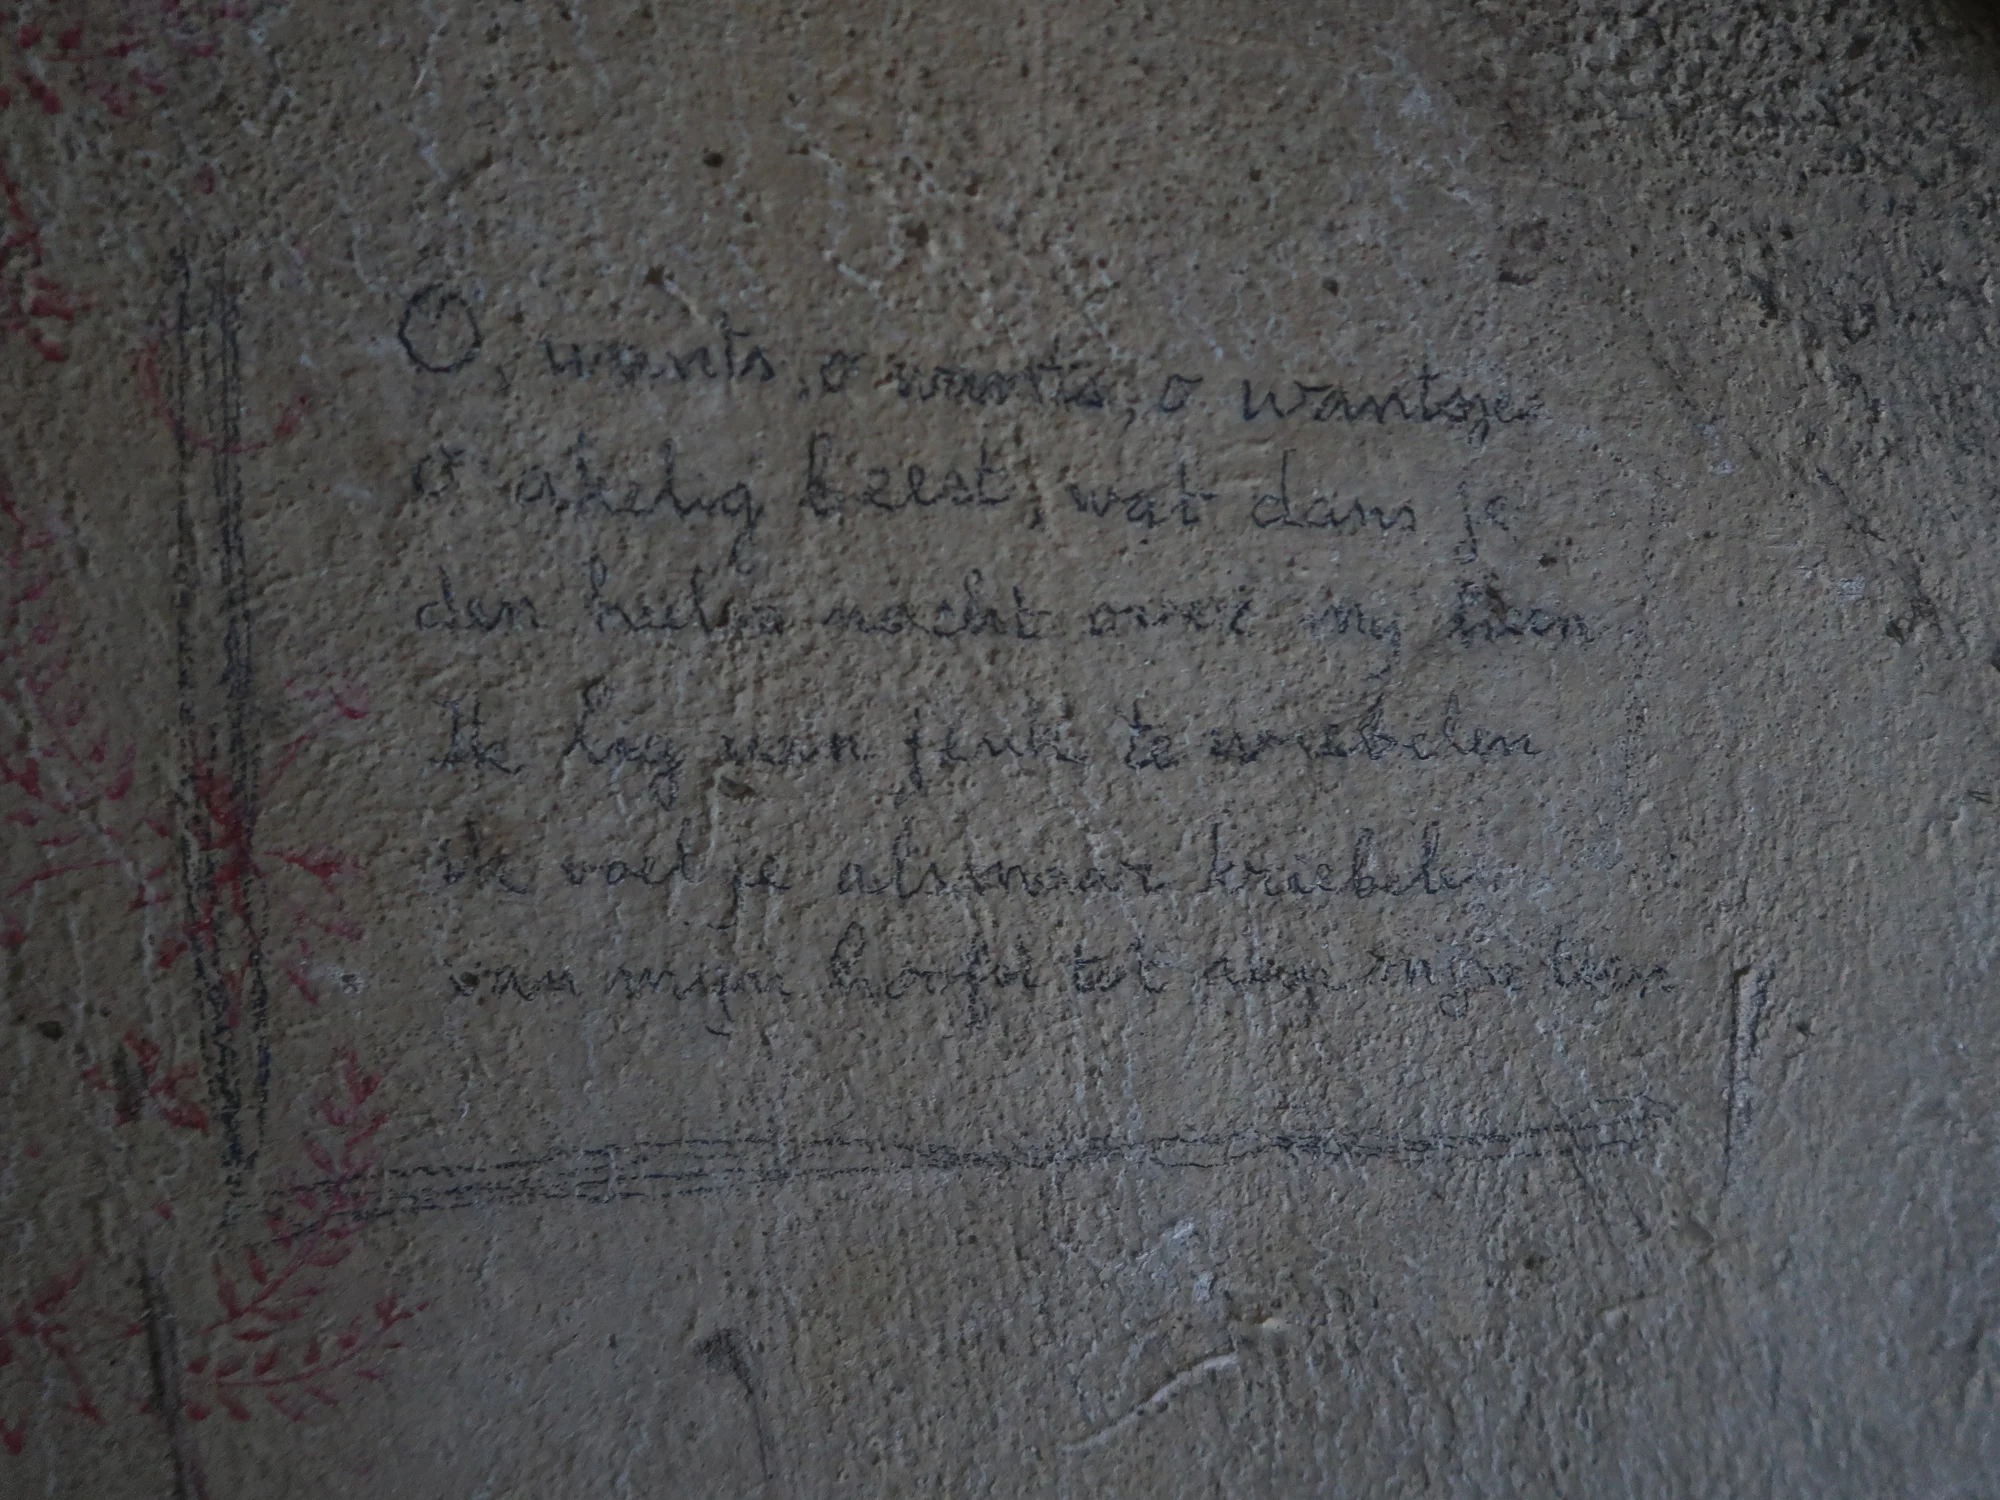 O, wants, o wants, o wantsje
O akelig beest, wat dans je
den heelen nacht over mij heen
Ik lig van jeuk te wriebelen
ik voel je alsmaar kriebelen
van mijn hoofd tot aan mijn teen